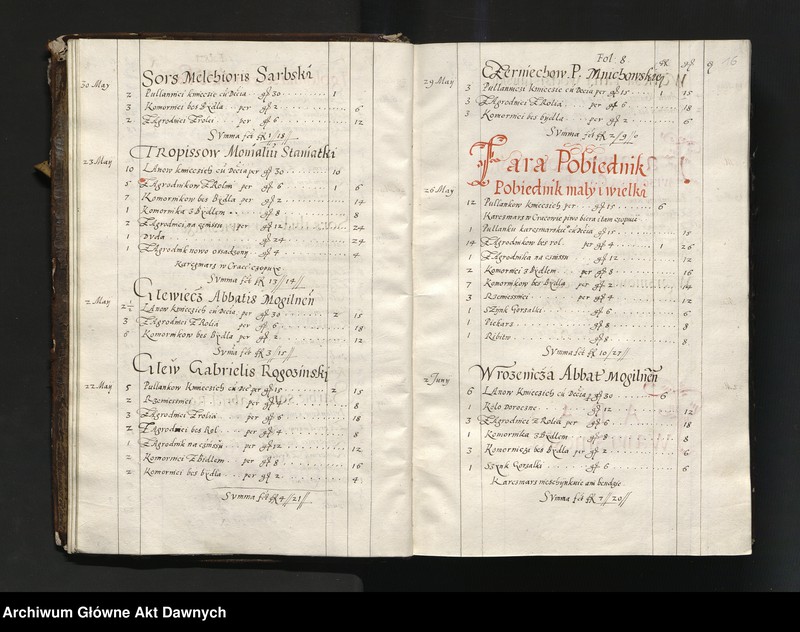 Sors Melchioris Sarbski
30 May
2 Pullanniei kmiecie cū Decia per gr 30 1
3 Komornici bes Bydla per gr 2 6
2 Zagrodnici Z rolei per gr 6 12
Summa fct fl 1/18//
Tropissow Monialiū Staniatki
23 May
10 Lanow kmiecich cū Decia per gr 30 10
5 Zagrodnikow Z Rolmi per gr 6 1 6
7 Komornikow bes Bydla per gr 2 14
1 Komornika Z Bydlem gr 8 8
2 Zagrodnici na czinssu per gr 12 24
1 Duda gr 24 24
1 Zagrodnik nowo osiadzony gr 4 4
Karczmars w Cracē czopuie
Summa fct fl 13//14//
Clewiecz Abbatis Mogilneñ
2 May
2½ Lanow kmiecich cū Decia per gr 30 2 15
3 Zagrodnici Z Rolia per gr 6 18
6 Komornikow bes Bydla per gr 2 12
Summa fct fl 3/15//
Clew Gabrielis Rogozinski
22 May
5 Pullankow Kmiecich cū Decia per gr 15 2 15
2 Rzemiesnici per gr 4 8
3 Zagrodnici Z rolia per gr 6 18
2 Zagrodnici bes Rol per gr 4 8
1 Zagrodnik na czinssu gr 12 12
2 Komornici Z Bidlem per gr 8 16
2 Komornici bes bydla per gr 2 4
Summa fct fl 4//21//
Fol 8
16
Czerniechow P. Mnichowskie
29 May
3 Pullanniczi kmiecie cū Decia per gr 15 1 15
3 Zagrodnici Z Rolia per gr 6 18
3 Komornici bes bydla per gr 2 6
Summa fct fl 2//9//0
Fara Pobiednik
Pobiednik maly i wielki
26 May
12 Pullankow kmiecich per gr 15 6
Karczmars w Cracowie piwo biera i tam czopuie
1 Pullanku karczmarskie° cū Decia gr 15 15
14 Zagrodnikow bes rol per gr 4 1 26
1 Zagrodnika na czinssu gr 12 12
2 Komornici Z bydlem per gr 8 16
7 Komornikow bes Bydla per gr 2 14
3 Rzemiesnici per gr 4 12
1 Szynk Gorzalki gr 6 6
1 Piekarz gr 8 8
1 Ribitw gr 8 8
Summa fct fl 10/27//
Wrozenicza Abbat Mogilneñ
2 Juny
6 Lanow kmiecich cū Decia per gr 30 6
1 Rolo Doroczne gr 12 12
3 Zagrodnici Z Rolia per gr 6 18
1 Komornika Z Bydlem gr 8 8
3 Kommornicza bes Bydla per gr 2 6
1 Szynk Gorzalki gr 6 6
Karczmars nieschijnknie ani bendzie
Summa fct fl 7//20//
Archiwum Główne Akt Dawnych